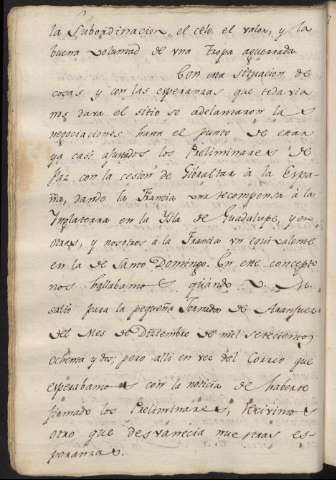 la Subordinacion, el celo el valor, y la
buena voluntad de vna Tropa aguerrida
Con esta situacion de
cosas y con las esperanzas que todavia
nos dava el sitio se adelantaron las
negociaciones hasta el punto de estar
ya casi ajustados los Preliminares de
Paz con la cesion de Gibraltar à la Espa-
ña, dando la Francia una recompensa à la
Inglaterra en la Ysla de Guadalupe, y en
otras, y nosotros à la Francia vn equivalente
en la de Santo Domingo. En este concepto
nos hallabamos quando V. M.
salió para la pequeña Jornada de Aranjuez
del Mes de Diciembre de mil setecientos
ochenta y dos; pero alli en vez del Correo que
esperabamos con la noticia de haberse
firmado los Preliminares, recivimos
otro que desvanecia nuestras es-
peranzas.